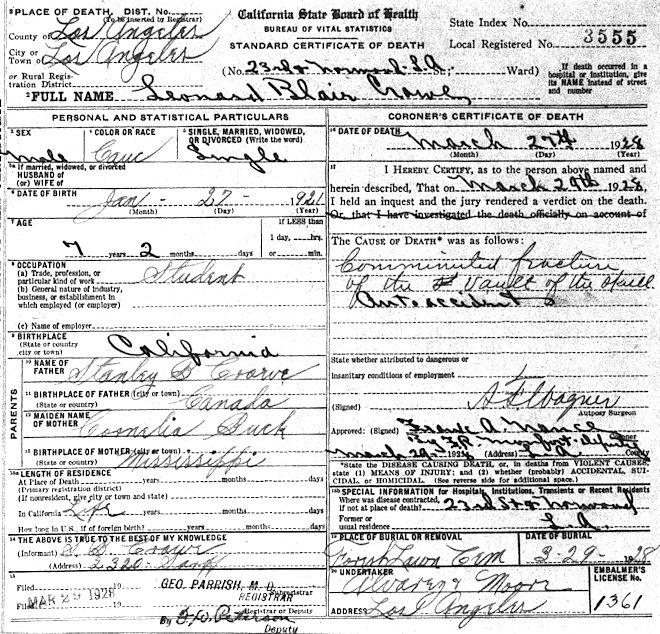 PLACE OF DEATH, DIST. NO.
(To be inserted by Registrar)
County of Los Angeles
City or
Town of Los Angeles
or Rural Regis-
tration District
California State Board of Health
BUREAU OF VITAL STATISTICS
STANDARD CERTIFICATE OF DEATH
State Index No.
Local Registered No. 3555
(No. 23rd & Norwood L.A. St.; Ward)
If death occurred in a
hospital or institution, give
its NAME instead of street
and number
2 FULL NAME Leonard Blair Crowe
PERSONAL AND STATISTICAL PARTICULARS
3 SEX
Male
4 COLOR OR RACE
Cauc
5 SINGLE, MARRIED, WIDOWED,
OR DIVORCED (Write the word)
Single
5a If married, widowed, or divorced
HUSBAND of
(or) WIFE of
6 DATE OF BIRTH
Jan - 27 - 1921
(Month) (Day) (Year)
7 AGE
7 years 2 months days
If LESS than
1 day, hrs.
or min.
8 OCCUPATION
(a) Trade, profession, or
particular kind of work Student
(b) General nature of industry,
business, or establishment in
which employed (or employer)
(c) Name of employer
9 BIRTHPLACE
(State or country)
city or town) California
PARENTS
10 NAME OF
FATHER Stanley B Crowe
11 BIRTHPLACE OF FATHER (city or town)
(State or country) Canada
12 MAIDEN NAME
OF MOTHER Cornelia Buck
13 BIRTHPLACE OF MOTHER (city or town)
(State or country) Mississippi
13a LENGTH OF RESIDENCE
At Place of Death years months days
(Primary registration district)
(If nonresident, give city or town and state)
In California Life years months days
How long in U.S., if of foreign birth? years months days
14 THE ABOVE IS TRUE TO THE BEST OF MY KNOWLEDGE
(Informant) S. B. Crowe
(Address) 2320
15
Filed MAR 29 1928 19
GEO. PARRISH, M. D.
Subregistrar
REGISTRAR
Filed 19
Registrar or Deputy
By
Deputy
CORONER'S CERTIFICATE OF DEATH
16 DATE OF DEATH
March 27th 1928
(Month) (Day) (Year)
17
I HEREBY CERTIFY, as to the person above named and
herein described, That on March 29th 1928
I held an inquest and the jury rendered a verdict on the death.
Or, that I have investigated the death officially on account of
THE CAUSE OF DEATH* was as follows:
Comminuted fracture
of the Vault of the Skull
Auto accident
State whether attributed to dangerous or
insanitary conditions of employment
(Signed) A F Wagner
Autopsy Surgeon
Approved: (Signed) Frank A. Nance
Coroner
March 29 - 1928 (Address) L.A.
*State the DISEASE CAUSING DEATH, or, in deaths from VIOLENT CAUSES,
state (1) MEANS OF INJURY; and (2) whether (probably) ACCIDENTAL, SUI-
CIDAL, or HOMICIDAL. (See reverse side for additional space.)
18b SPECIAL INFORMATION for Hospitals, Institutions, Transients or Recent Residents
Where was disease contracted,
if not at place of death? 23rd St & Norwood
Former or
usual residence L.A.
19 PLACE OF BURIAL OR REMOVAL
Forest Lawn Cem
DATE OF BURIAL
3-29-1928
20 UNDERTAKER
Alvarez & Moore
ADDRESS Los Angeles
EMBALMER'S
LICENSE No.
1361